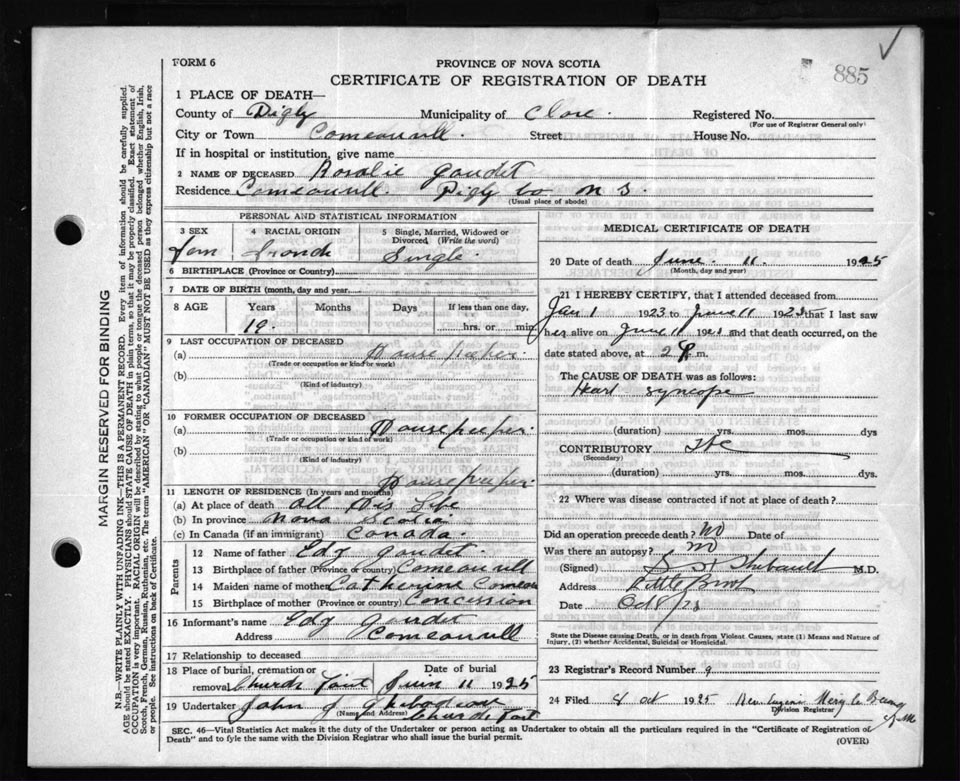 FORM 6
PROVINCE OF NOVA SCOTIA
CERTIFICATE OF REGISTRATION OF DEATH
885
1 PLACE OF DEATH—
County of Digby Municipality of Clare Registered No.
(For use of Registrar General only)
City or Town Comeauvill. Street House No.
If in hospital or institution, give name
2 NAME OF DECEASED Rosalie Gaudet
Residence Comeauvill. Digby Co N S.
(Usual place of abode)
PERSONAL AND STATISTICAL INFORMATION
3 SEX 4 RACIAL ORIGIN 5 Single, Married, Widowed or Divorced (Write the word)
Fem French Single.
6 BIRTHPLACE (Province or Country)
7 DATE OF BIRTH (month, day and year)
8 AGE Years Months Days If less than one day,
19. hrs. or min
9 LAST OCCUPATION OF DECEASED
(a) House keeper.
(Trade or occupation or kind of work)
(b)
(Kind of industry)
10 FORMER OCCUPATION OF DECEASED
(a) House keeper.
(Trade or occupation or kind of work)
(b)
(Kind of industry)
House keeper.
11 LENGTH OF RESIDENCE (In years and months)
(a) At place of death all His Life
(b) In province Nova Scotia
(c) In Canada (if an immigrant) Canada.
Parents
12 Name of father Edg Gaudet.
13 Birthplace of father (Province or country) Comeauvill
14 Maiden name of mother Catherine Comeau
15 Birthplace of mother (Province or country) Concession
16 Informant's name Edg Gaudet
Address Comeauvill
17 Relationship to deceased
18 Place of burial, cremation or removal Church Point Date of burial Juin 11 1925
19 Undertaker John J Thibodeau
(Name and Address) Church Point
MEDICAL CERTIFICATE OF DEATH
20 Date of death June. 11. 1925
(Month, day and year)
21 I HEREBY CERTIFY, that I attended deceased from
Jan 1 1923 to June 11 192 that I last saw
her alive on June 11 192 and that death occurred, on the
date stated above, at 2 P. m.
The CAUSE OF DEATH was as follows:
Heart Syncope
(duration) yrs. mos. dys
CONTRIBUTORY
(Secondary)
(duration) yrs. mos. dys.
22 Where was disease contracted if not at place of death?
Did an operation precede death? No Date of
Was there an autopsy? No
(Signed) Thibault M.D.
Address Little Brook
Date Oct 8/25
State the Disease causing Death, or in death from Violent Causes, state (1) Means and Nature of
Injury, (2) whether Accidental, Suicidal or Homicidal.
23 Registrar's Record Number 9
24 Filed 8 Oct 1925 Rev. Eugene
Division Registrar
SEC. 46—Vital Statistics Act makes it the duty of the Undertaker or person acting as Undertaker to obtain all the particulars required in the "Certificate of Registration of
Death" and to fyle the same with the Division Registrar who shall issue the burial permit.
(OVER)
MARGIN RESERVED FOR BINDING
N.B.—WRITE PLAINLY WITH UNFADING INK—THIS IS A PERMANENT RECORD. Every item of information should be carefully supplied.
AGE should be stated EXACTLY. PHYSICIANS should STATE CAUSE OF DEATH in plain terms, so that it may be properly classified. Exact statement of
OCCUPATION is very important. RACIAL ORIGIN will be described by stating to what people or tongue the deceased person belonged whether English, Irish,
Scotch, French, German, Russian, Ruthenian, etc. The terms "AMERICAN" or "CANADIAN" MUST NOT BE USED as they express citizenship but not a race
or people. See instructions on back of Certificate.